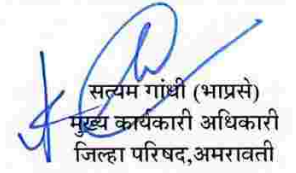 सत्यम गांधी (भाप्रसे)
मुख्य कार्यकारी अधिकारी
जिल्हा परिषद,अमरावती